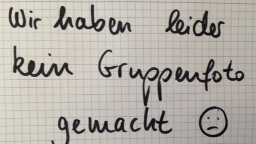 Wir haben leider
kein Gruppenfoto
gemacht ☹